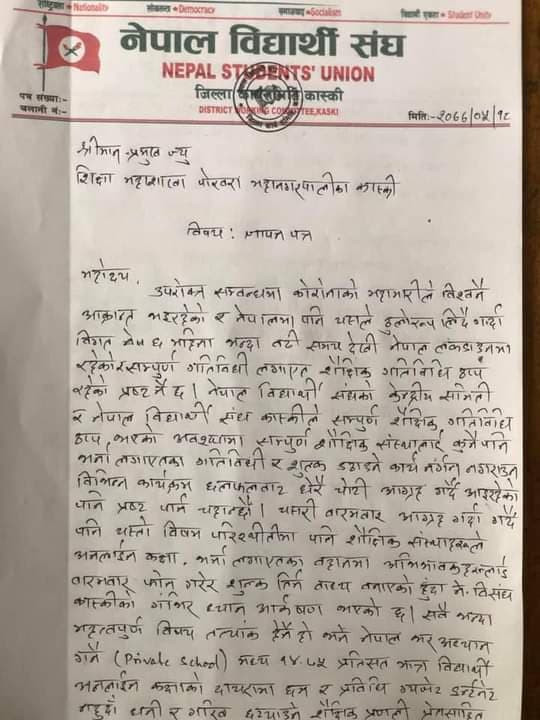 राष्ट्रियता ★ Nationality लोकतन्त्र ★ Democracy समाजवाद ★ Socialism विद्यार्थी एकता ★ Student Unity
नेपाल विद्यार्थी संघ
NEPAL STUDENTS' UNION
जिल्ला कार्यसमिति कास्की
DISTRICT WORKING COMMITTEE, KASKI
पत्र संख्या:-
चलानी नं:-
मिति:- २०७७/०५/१८
श्रीमान् प्रमुख ज्यु
शिक्षा महाशाखा पोखरा महानगरपालीका कास्की
विषय : ज्ञापन पत्र
महोदय,
उपरोक्त सम्बन्धमा कोरोनाको महामारीले विश्वनै
आक्रान्त भइरहेको र नेपालमा पनि यसले ठुलोरुप लिदै गर्दा
विगत ६ महिना भन्दा बढी समय देखी नेपाल लकडाउनमा
रहेकोर सम्पूर्ण गतिविधी लगाएत शैक्षिक गतिविधि ठप्प
रहेको प्रष्ट नै छ । नेपाल विद्यार्थी संघको केन्द्रीय समिती
र नेपाल विद्यार्थी संघ कास्कीले सम्पूर्ण शैक्षिक गतिविधि
ठप्प भएको अवस्थामा सम्पूर्ण शैक्षिक संस्थालाई कुनै पनि
भर्ना लगाएतका गतिविधी र शुल्क उठाउने कार्य नगर्न नगराउन
विभिन्न कार्यक्रम छलफलबाट धेरै चोटी आग्रह गर्दै आइरहेको
पनि प्रष्ट पार्न चहान्छौं । यसरी बारमबार आग्रह गर्दा गर्दै
पनि यस्तो विषम परिस्थीतीमा पनि शैक्षिक संस्थाहरुले
अनलाईन कक्षा, भर्ना लगाएतका बहानामा अभिभावकहरुलाई
बारमबार फोन गरेर शुल्क तिर्न बाध्य बनाएको हुँदा ने.वि.संघ
कास्कीको गंभिर ध्यान आर्कषण भएको छ । सबै भन्दा
महत्वपुर्ण विषय तथ्यांक हेर्ने हो भने नेपाल भर अध्यान
गर्ने (Private School) मध्य १४.७५ प्रतिसत मात्र विद्यार्थी
अनलाईन कक्षाको दायरामा छन र प्रविधि ग्याजेट ईन्टरनेट
नहुदाँ धनी र गरिब छुट्याउने शैक्षिक प्रणाली